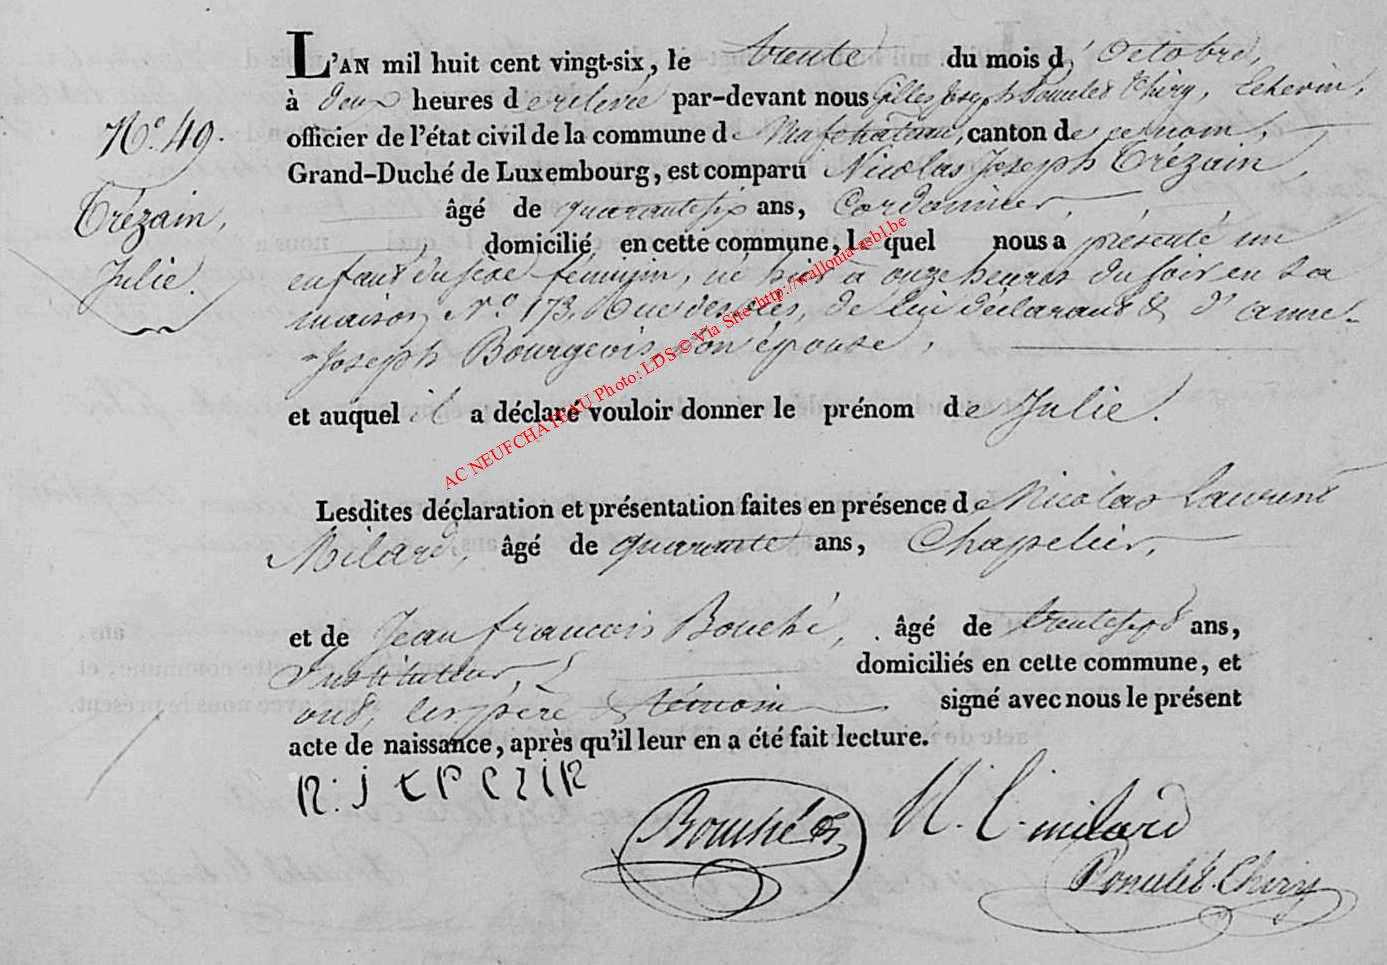 L'AN mil huit cent vingt-six, le trente du mois d'Octobre,
à deux heures de relevée par-devant nous Gilles Joseph Poncelet Thiry, Echevin,
officier de l'état civil de la commune de Neufchateau, canton de ce nom,
N.º 49.
Grand-Duché de Luxembourg, est comparu Nicolas Joseph Trézain,
Trézain,
âgé de quarante six ans, Cordonnier,
domicilié en cette commune, lequel nous a présenté un
Julie.
enfant du sexe féminin, né hier à onze heures du soir en sa
maison N.º 173, Rue des , de lui déclarant & d'anne-
Joseph Bourgeois son épouse,
et auquel il a déclaré vouloir donner le prénom de Julie.
AC NEUFCHATEAU Photo: LDS © Via Site http://wallonia-asbl.be
Lesdites déclaration et présentation faites en présence de Nicolas Laurent
Milard, âgé de quarante ans, Chapelier,
et de Jean françois Bouché, âgé de trente sept ans,
Instituteur, domiciliés en cette commune, et
ont, les père & témoin signé avec nous le présent
acte de naissance, après qu'il leur en a été fait lecture.
Bouché
N. L. milard
Poncelet-Thiry